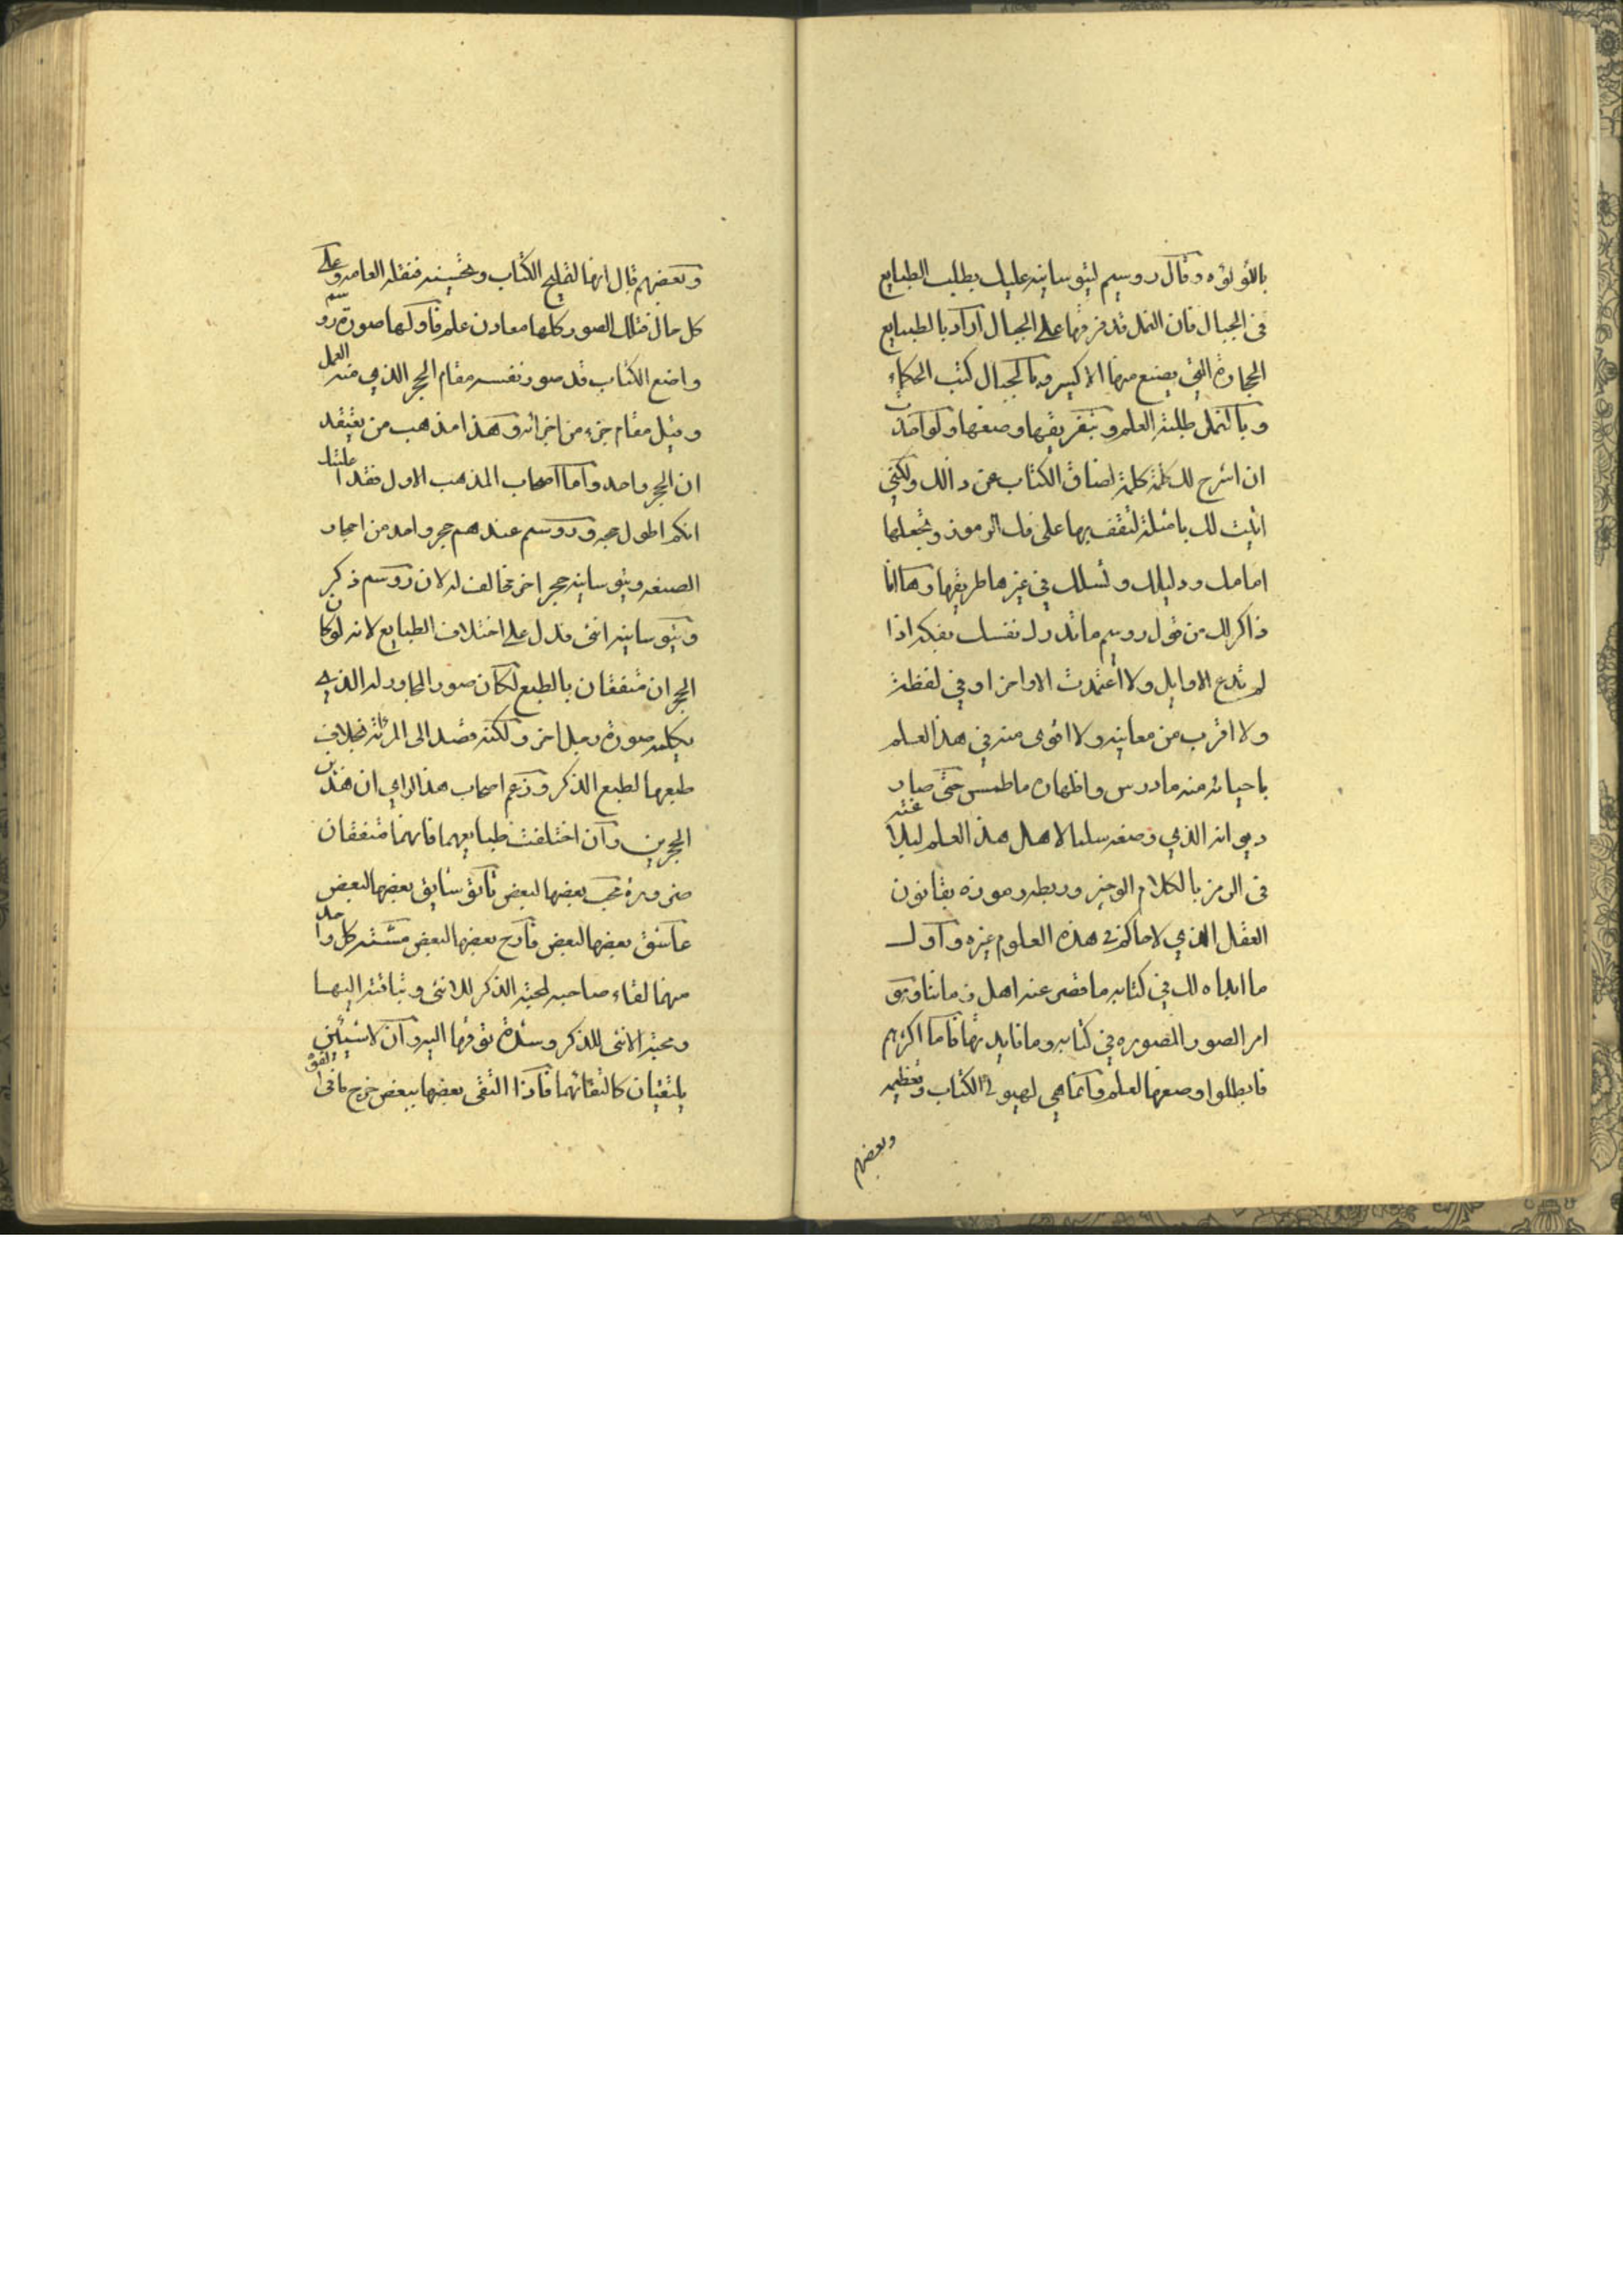 باللؤلؤه وقال روسيم لثيوسانيه عليك بطلب الطبايع
في الجبال فان النمل قد فرقها على الجبال اراد بالطبايع
الحجارة التي يصنع منها الاكسير وبالجبال كتب الحكماء
وبالنمل طلبة العلم وبتفريقها وصفها ولو اخذت
ان اشرح لك كلمة كلمة لضاق الكتاب عن ذالك ولكني
اثبت لك بامثلة لتقف بها على فك الرموز وتجعلها
امامك ودليلك وتسلك في غيرها طريقها وها انا
ذاكر لك من قول روسيم ما تدرك نفسك بفكر اذا
لم تدع الاوايل ولا اعتمدت الاواخر اوفى لفظة
ولا اقرب من معانيه ولا اقوى منه في هذا العلم
باحيائه منه ما درس واظهاره ما طمس حتى صار
ديوانه الذي وصفه سلما لاهل هذا العلم ليلا عنه
في الرمز بالكلام الوجيز وربطه رموزه بقانون
العقل الذي لا حاكم في هذه العلوم غيره واول
ما ابداه لك في كتابه ما قصر عنه اهل زماننا وهو
امر الصور المصوره في كتابه وما فايدتها فاما اكثرهم
فابطلوا وضعها لعلم وانما هي لهيولى الكتاب وتعظيمه
وبعضهم
وبعضهم قال انها لتمليح الكتاب وتحسينه فتقله العامه وعلى
كل حال فتلك الصور كلها معادن علم فاولها صورة روسم
واضع الكتاب قد صور نفسه مقام الحجر الذي منه العمل
وقيل مقام جزء من اجزائه وهذا مذهب من يعتقد
ان الحجر واحد واما اصحاب المذهب الاول فقد اعلمتك
انكم اطول حجه وروسم عندهم حجر واحد من احجار
الصنعه وثيوسانيه حجر اخر مخالف له لان روسم ذكر
وثيوسانيه انثى فدل على اختلاف الطبايع لانه لو كان
الحجران متفقان بالطبع لكان صور المجاور له الذي
يكلمه صورة رجل اخر ولكنه قصد الى المرئة بخلاف
طبعها لطبع الذكر وزعم اصحاب هذا الراي ان هذين
الحجرين وان اختلفت طبايعهما فانهما متفقان
ضرورة محب بعضها لبعض تايق سايق بعضها لبعض
عاشق بعضها لبعض فارح بعضها لبعض مشته كل واحد
منهما لقاء صاحبه لمحبة الذكر للانثى وتياقته اليها
ومحبة الانثى للذكر وشدة توقها اليه وان لا شيئين
يلتقيان كالتقائهما فاذا التقى بعضها ببعض خرج ما في القوة